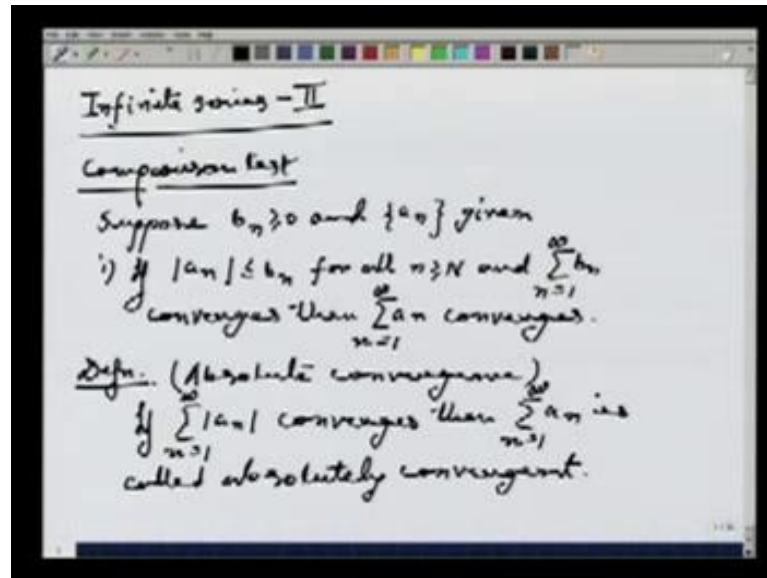 Infinite series - II
Comparison test
Suppose bₙ ≥ 0 and {aₙ} given
i) If |aₙ| ≤ bₙ for all n ≥ N and ∑_{n=1}^{∞} bₙ
converges then ∑_{n=1}^{∞} aₙ converges.
Defn. (Absolute convergence)
If ∑_{n=1}^{∞} |aₙ| converges then ∑_{n=1}^{∞} aₙ is
called absolutely convergent.